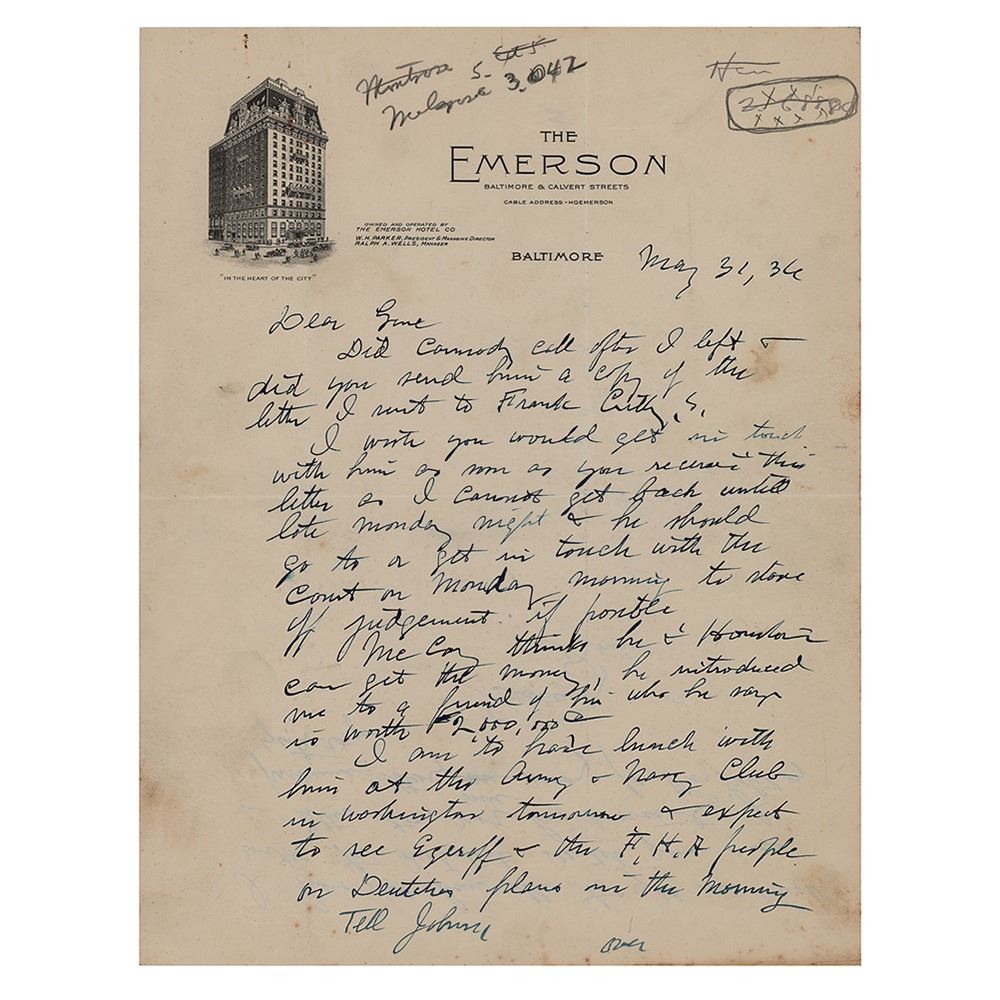 Montrose S.
Melrose 3.042
THE
EMERSON
BALTIMORE & CALVERT STREETS
CABLE ADDRESS-HOEMERSON
OWNED AND OPERATED BY
THE EMERSON HOTEL CO
W. H. PARKER, PRESIDENT & MANAGING DIRECTOR
RALPH A. WELLS, MANAGER
"IN THE HEART OF THE CITY"
BALTIMORE May 31, 36
Dear Gene
Did Carmody call after I left &
did you send him a copy of the
letter I sent to Frank
I wish you would get in touch
with him as soon as you receive this
letter as I cannot get back untill
late Monday night & he should
go to or get in touch with the
Court on Monday morning to stave
off judgement if possible
McCoy thinks he &
can get the money, he introduced
me to a friend of his who he says
is worth $2,000,000
I am to have lunch with
him at the Army & Navy Club
in Washington tomorrow & expect
to see & the F.H.A people
on plans in the morning
Tell
over